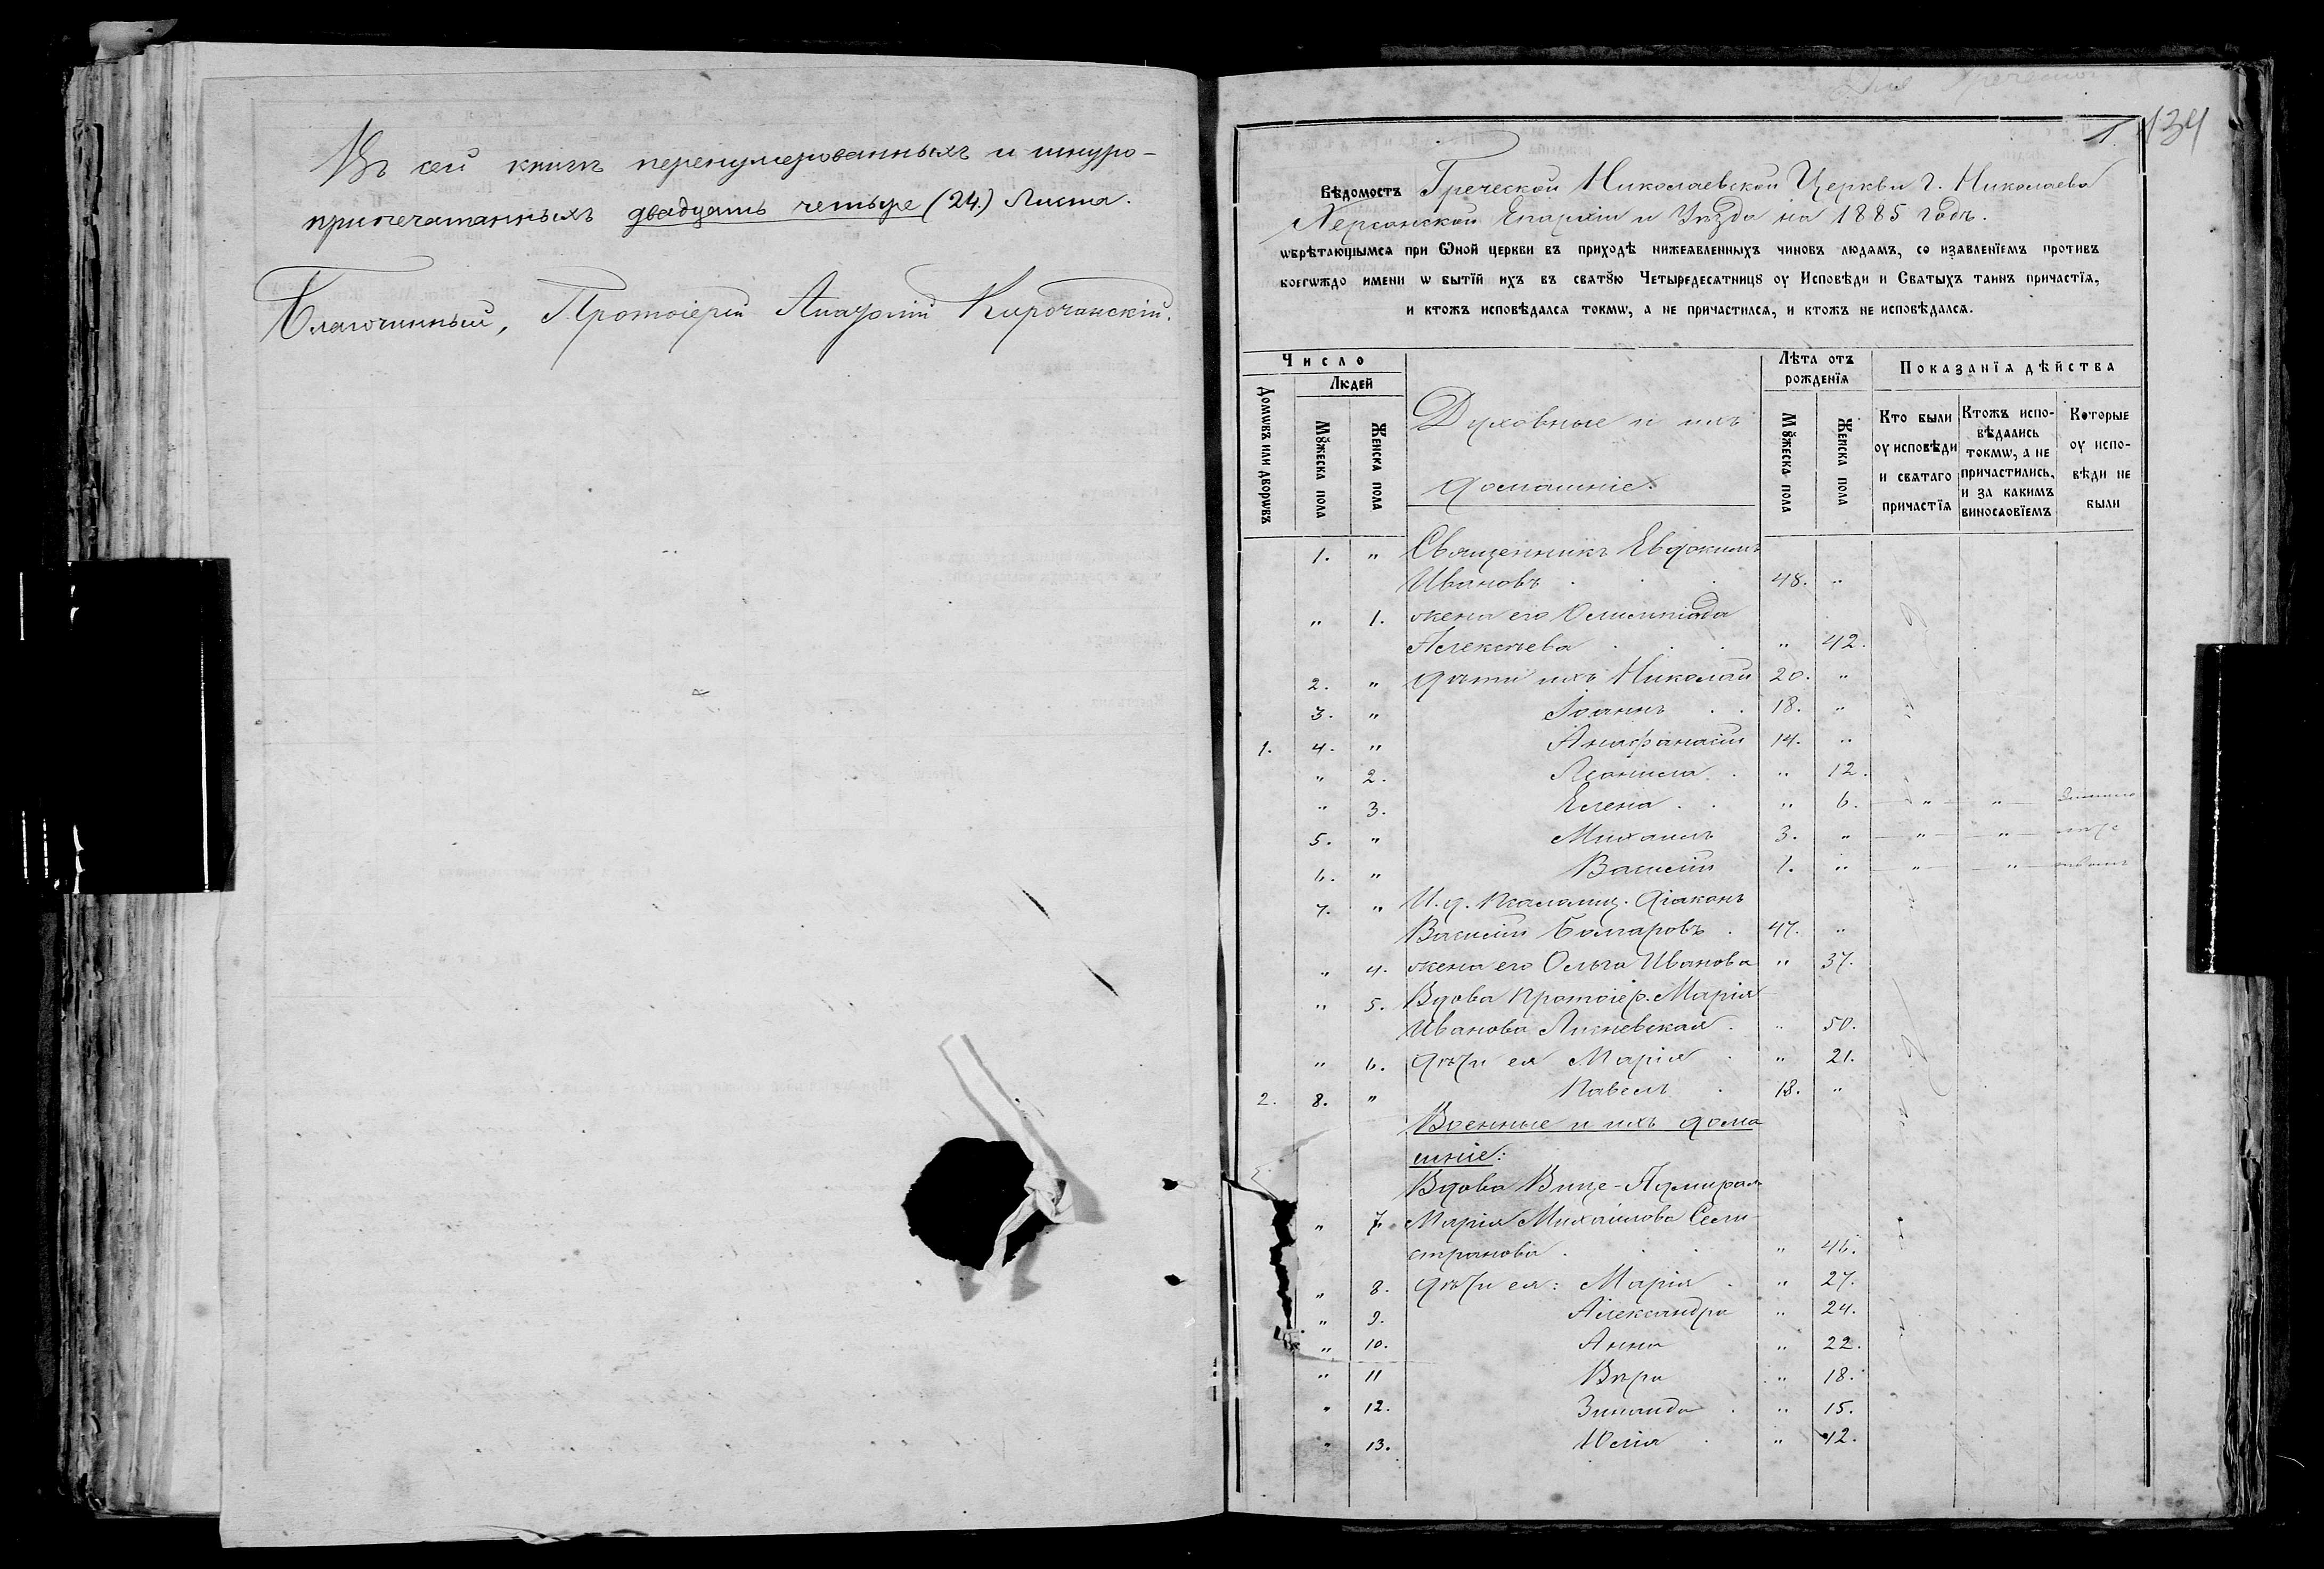 Въ сей книгѣ перенумерованныхъ и шнуро-
припечатанныхъ двадцать четыре (24.) листа.
Благочинный, Протоіерей Анатолій Кирочанскій.
1. 134
Вѣдомость Греческой Николаевской Церкви г. Николаева
Херсонской Епархіи и Уѣзда на 1885 годъ.
ѡбрѣтающымсѧ при Ѡной церкви въ приходѣ нижеѧвленныхъ чиновъ людѧмъ, со изѧвленїемъ противъ
коегѡждо имени ѡ бытїй ихъ въ свѧтꙋю Четыредесѧтницꙋ оу Исповѣди и Свѧтыхъ таинъ причастїѧ,
и ктожъ исповѣдалсѧ токмѡ, а не причастилсѧ, и ктожъ не исповѣдалсѧ.
Число
Домѡвъ или дворѡвъ
Людей
Мꙋжеска пола
Женска пола
Духовные и ихъ
домашніе.
Лѣта отъ рожденїѧ
Мꙋжеска пола
Женска пола
Показанїѧ дѣйства
Кто были оу исповѣди и свѧтаго причастїѧ
Ктожъ исповѣдались токмѡ, а не причастились, и за какимъ винословїемъ
Которые оу исповѣди не были
1. " Священникъ Евдокимъ
Ивановъ . . . 48. "
" 1. жена его Олимпіада
Алексѣева . . . " 42.
2. " дѣти ихъ Николай 20. "
3. " Іоаннъ . . 18. "
1. 4. " Анафанасій 14. "
" 2. Леонила . " 12.
" 3. Елена . . " 6. " "
5. " Михаилъ 3. " " "
6. " Василій 1. " " "
7. " И. д. Псаломщ. Діаконъ
Василій Болгаровъ . 47. "
" 4. жена его Ольга Иванова " 37.
" 5. Вдова Протоіер. Марія
Иванова Лисневская . " 50.
" 6. дѣти ея Марія . " 21.
2. 8. " Павелъ . 18. "
Военные и ихъ дома
шніе:
Вдова Вице-Адмирал
" 7. Марія Михайлова Сели
странова . . . " 46.
" 8. дѣти ея: Марія . " 27.
" 9. Александра " 24.
" 10. Анна " 22.
" 11 Вѣра " 18.
" 12. Зинаида . " 15.
" 13. Юлія . " 12.